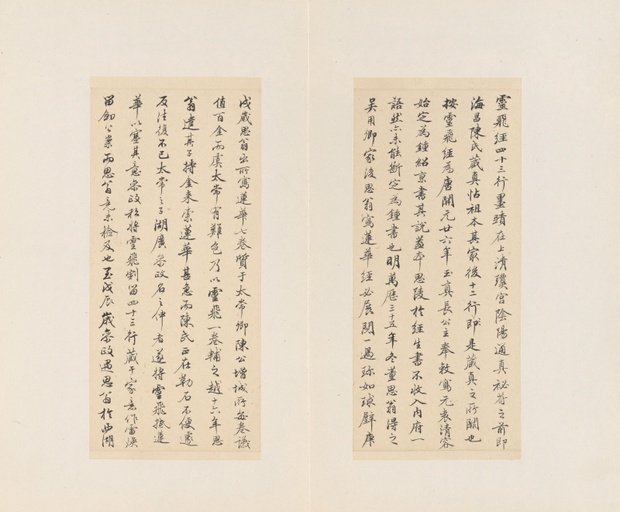 靈飛經四十三行墨蹟在上清瓊宮陰陽通真祕符之前即
海昌陳氏藏真帖祖本其家後十二行即是藏真之所闕也
按靈飛經為唐開元廿六年玉真長公主奉敕寫元袁清容
始定為鍾紹京書其說蓋本思陵於經生書不收入內府一
語然亦未能斷定為鍾書也明萬曆三十五年冬董思翁得之
吳用卿家後思翁寫蓮華經必展閱一過珍如球璧庚
戌歲思翁出所寫蓮華七卷質于太常卿陳公增城所每卷議
值百金而虞太常有難色乃以靈飛一卷輔之越十六年思
翁遣其子持金來索蓮華甚急而陳氏正在勒石不便遽
反往復不已太常之子湖廣參政名之伸者遂將靈飛抵蓮
華以塞其意參政私將靈飛割留四十三行藏于家意作雷煥
留劍公案而思翁竟未檢及也至戊辰歲參政遇思翁於西湖